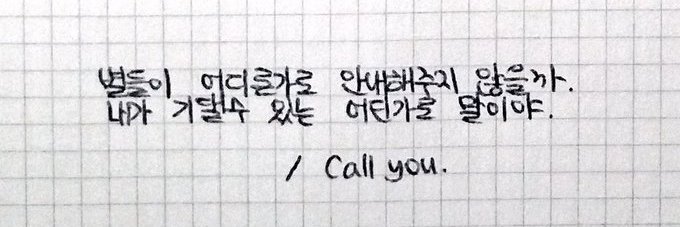 별들이 어디론가로 안내해주지 않을까.
내가 기댈수 있는 어딘가로 말이야.
/ Call you.